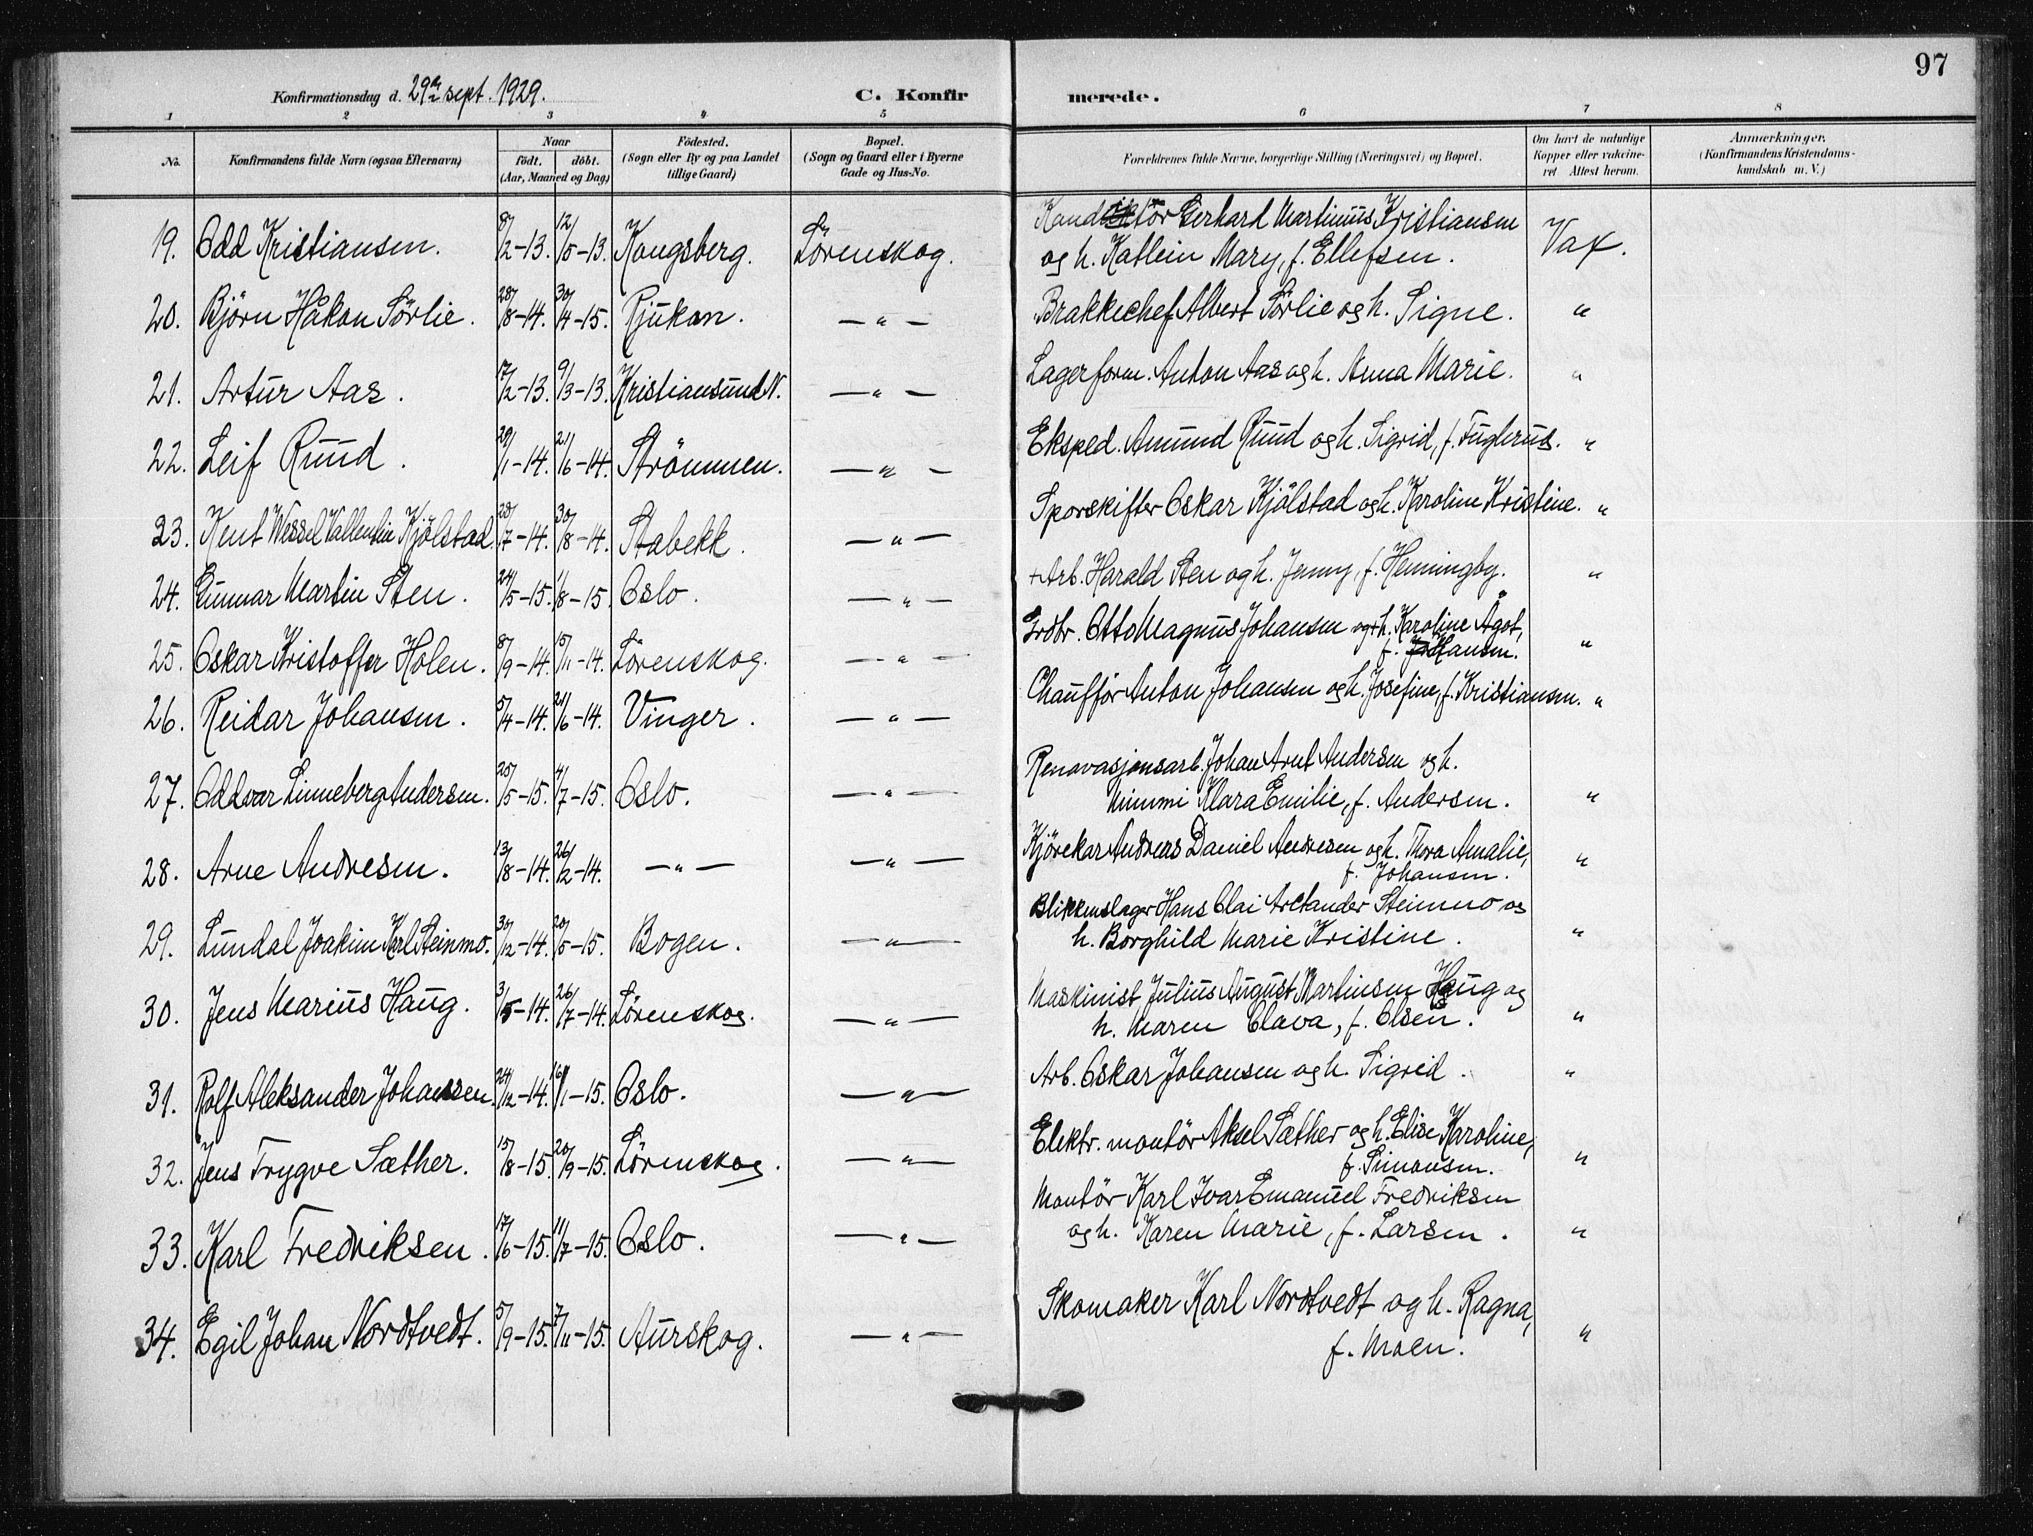 97
Konfirmationsdag d. 29de sept. 1929.
C. Konfirmerede.
1 2 3 4 5 6 7 8
No. Konfirmandens fulde Navn (ogsaa Efternavn) Naar født. døbt. (Aar, Maaned og Dag) Födested. (Sogn eller By og paa Landet tillige Gaard) Bopæl. (Sogn og Gaard eller i Byerne Gade og Hus-No. Forældrenes fulde Navne, borgerlige Stilling (Næringsvei) og Bopæl. Om havt de naturlige Kopper eller vakcineret Attest herom. Anmærkninger. (Konfirmandens Kristendomskundskab m. V.)
19. Odd Kristiansen. 8/2-13. 12/5-13. Kongsberg. Lörenskog. Konduktör Gerhard Martinius Kristiansen
og h. Katlein Mary, f. Ellefsen. Vax.
20. Björn Håkon Sörlie. 28/8-14. 30/4-15. Rjukan. — " — Brakkechef Albert Sörlie og h. Signe. "
21. Artur Aas. 17/2-13. 9/3-13. Kristiansund N. — " — Lagerform. Anton Aas og h. Anna Marie. "
22. Leif Ruud. 29/1-14. 21/6-14. Strömmen. — " — Eksped. Amund Ruud og h. Sigrid, f. Fuglerud. "
23. Kent Wessel Vallentin Kjölstad. 28/7-14. 30/8-14. Stabekk. — " — Sporskifter Oskar Kjölstad og h. Karoline Kristine. "
24. Gunnar Martin Sten. 24/5-15. 1/8-15. Oslo. — " — +Arb. Harald Sten og h. Jenny, f. Henningby. "
25. Oskar Kristoffer Holen. 8/9-14. 15/11-14. Lörenskog. — " — Grdbr. Otto Magnus Johansen og h. Karoline Ågot,
f. Hansen. "
26. Reidar Johansen. 5/4-14. 21/6-14. Vinger. — " — Chaufför Anton Johansen og h. Josefine, f. Kristiansen. "
27. Oddvar Linneberg Andersen. 25/5-15. 4/7-15. Oslo. — " — Renovasjonsarb. Johan Arnt Andersen og h.
Mimmi Klara Emilie, f. Andersen. "
28. Arne Andresen. 13/8-14. 26/12-14. — " — — " — Kjörekar Andreas Daniel Andresen og h. Thora Amalie,
f. Johansen. "
29. Lundal Joakim Karl Steinmo. 30/12-14. 20/5-15. Bogen. — " — Blikkenslager Hans Olai Arctander Steinmo og
h. Borghild Marie Kristine. "
30. Jens Marius Haug. 3/5-14. 26/7-14. Lörenskog. — " — Maskinist Julius August Martinsen Haug og
h. Maren Olava, f. Olsen. "
31. Rolf Aleksander Johanssen. 24/12-14. 1/1-15. Oslo. — " — Arb. Oskar Johansen og h. Sigrid. "
32. Jens Trygve Sæther. 15/8-15. 20/9-15. Lörenskog. — " — Elektr. montör Aksel Sæther og h. Elise Karoline,
f. Simonsen. "
33. Karl Fredriksen. 17/6-15. 11/7-15. Oslo. — " — Montör Karl Ivar Emanuel Fredriksen
og h. Karen Marie, f. Larsen. "
34. Egil Johan Nordtvedt. 5/9-15. 7/11-15. Aurskog. — " — Skomaker Karl Nordtvedt og h. Ragna,
f. Moen. "